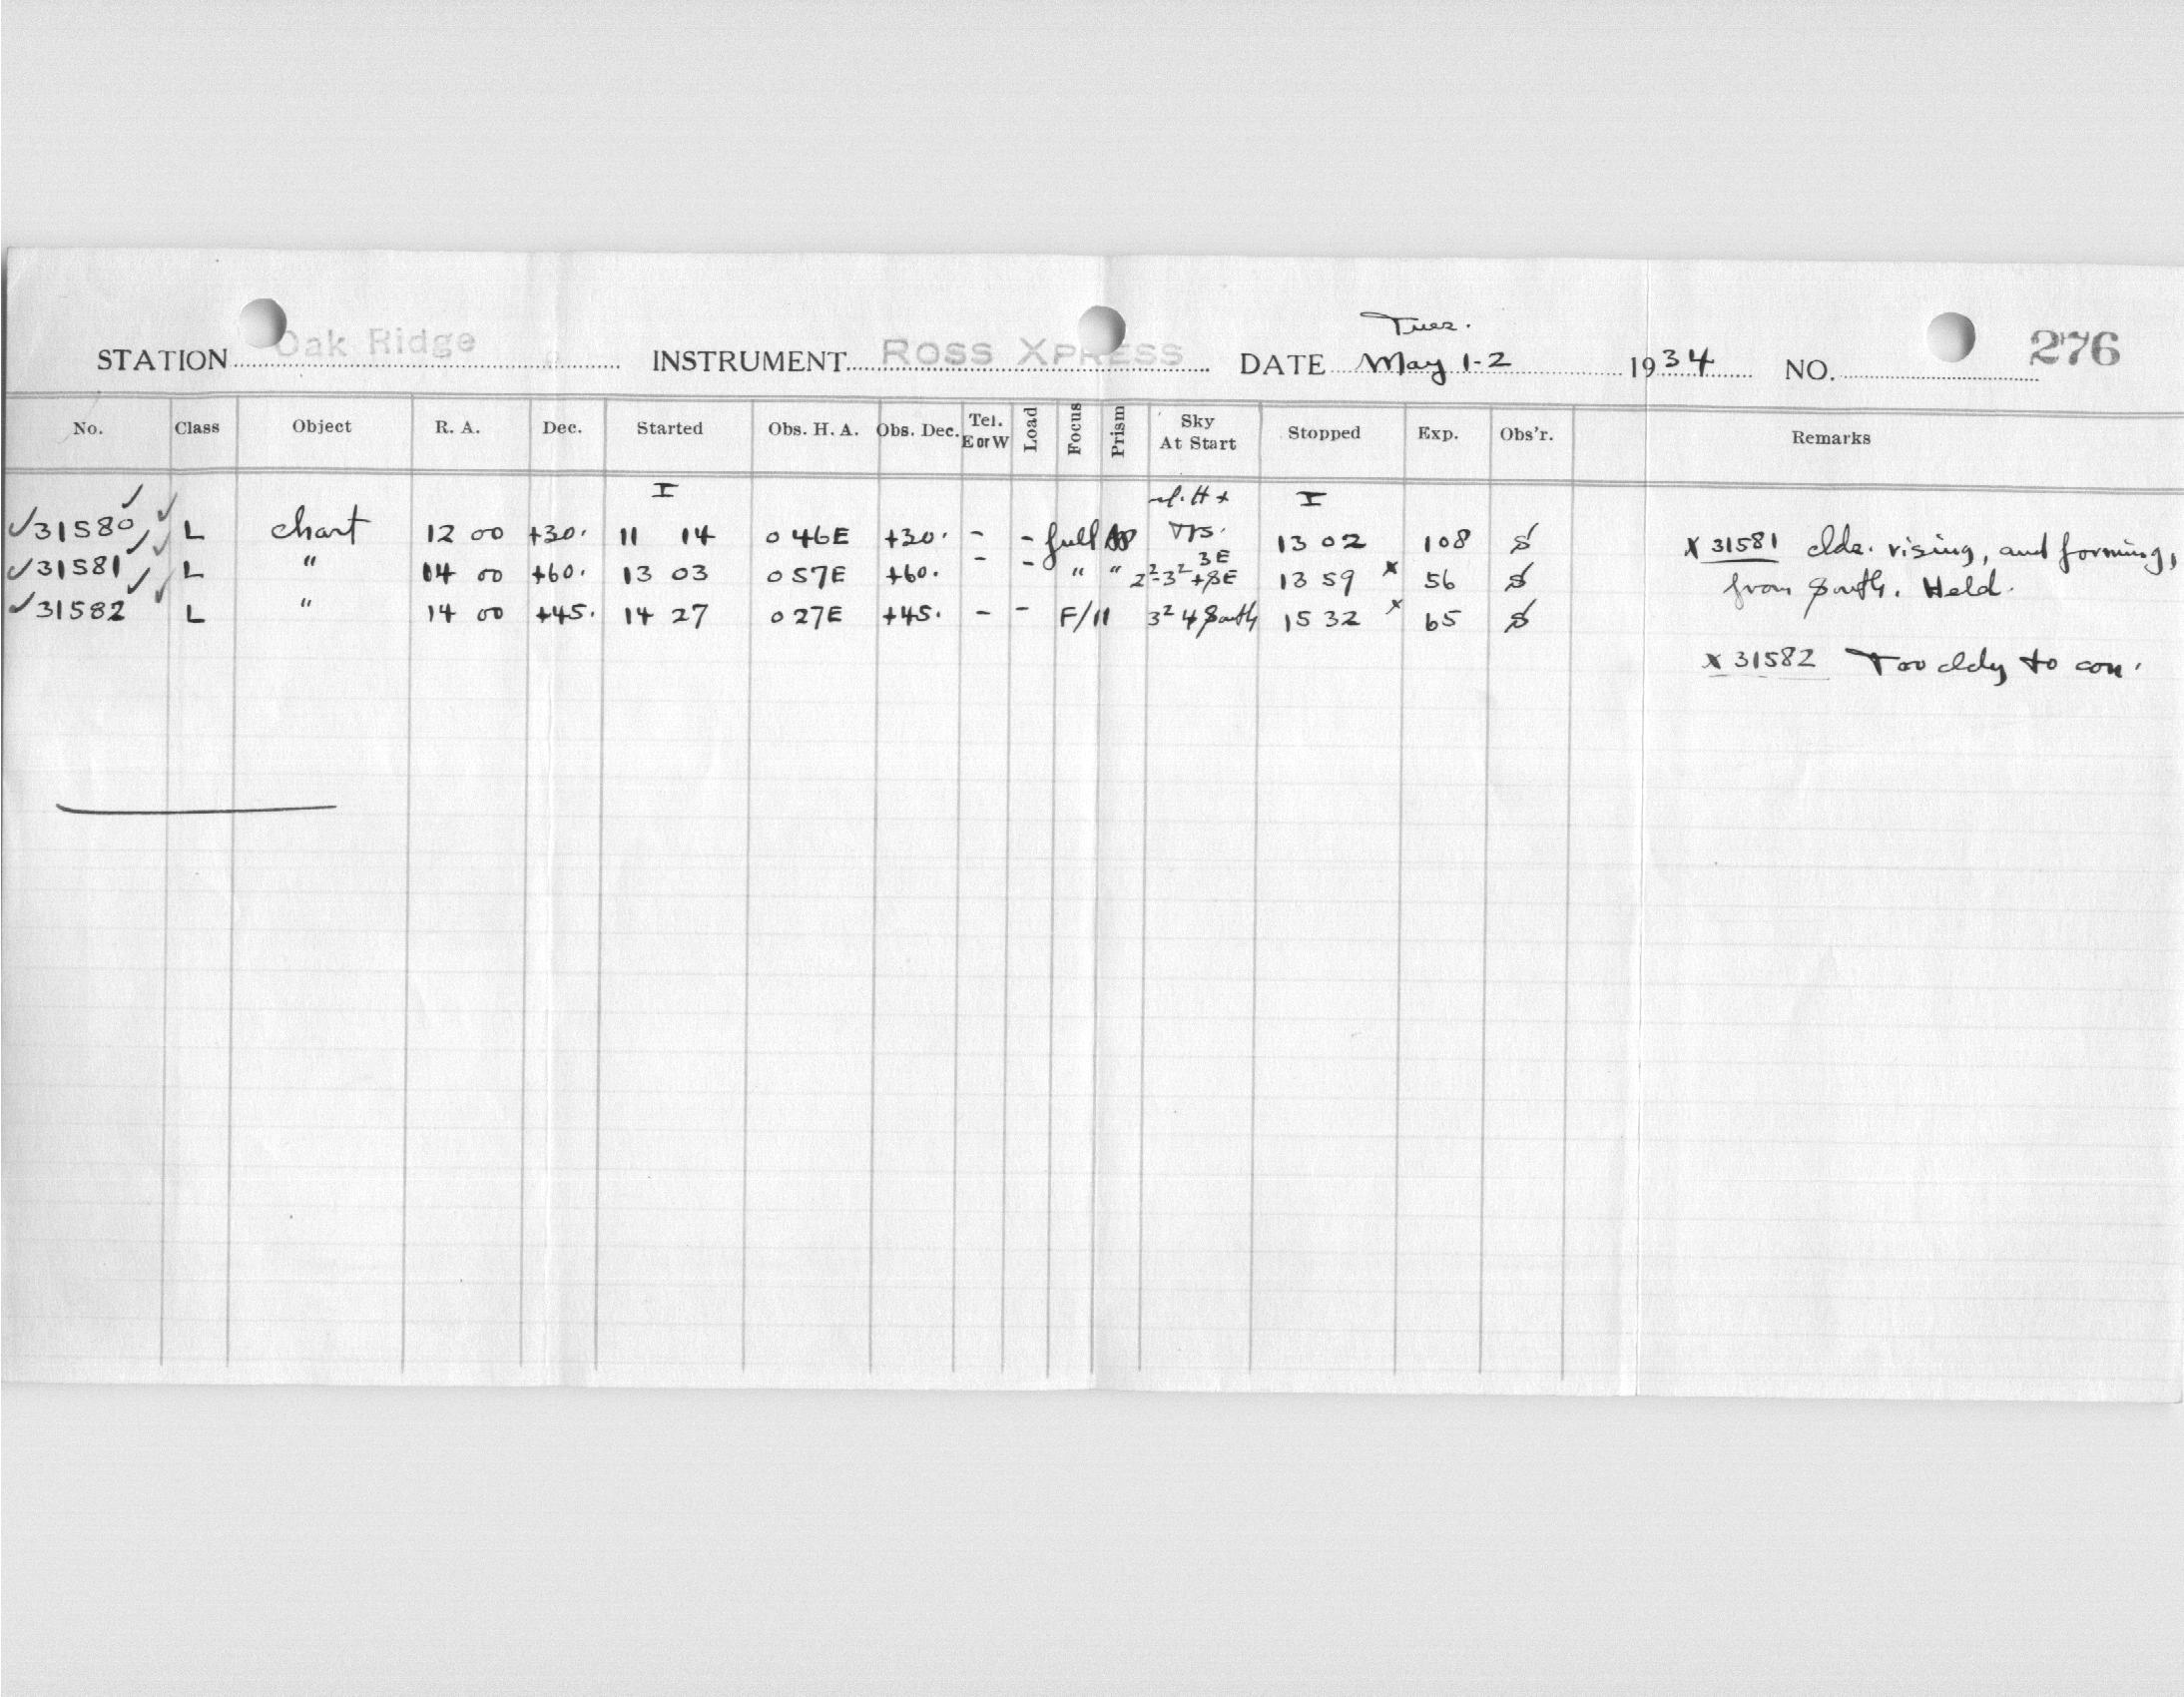 Tues.
STATION Oak Ridge INSTRUMENT ROSS XPRESS DATE May 1-2 1934 NO. 276
No. Class Object R. A. Dec. Started Obs. H. A. Obs. Dec. Tel. E or W Load Focus Prism Sky At Start Stopped Exp. Obs'r. Remarks
I I
✓31580 ✓ L chart 12 00 +30. 11 14 0 46E +30. - - full 13 02 108 S
✓31581 ✓ L " 14 00 +60. 13 03 0 57E +60. - - " " 2²-3² 3E 13 59 x 56 S
✓31582 ✓ L " 14 00 +45. 14 27 0 27E +45. - - F/11 3² 4 South 15 32 x 65 S
x 31581 clds. rising, and forming,
from South. Held.
x 31582 Too cldy to con.